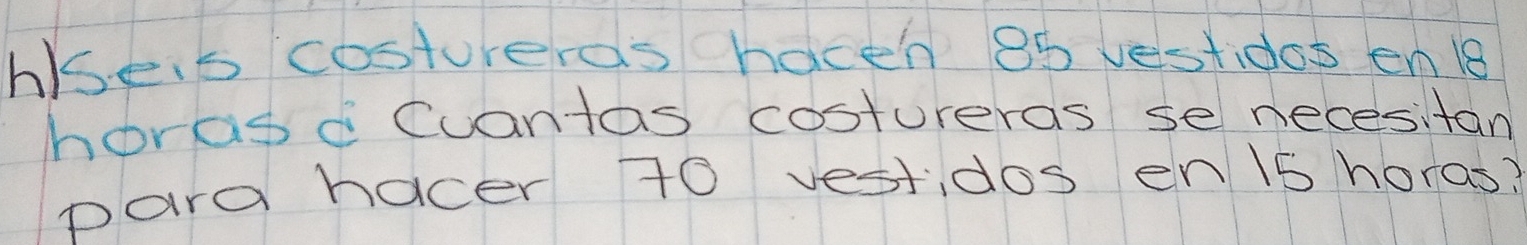 h) Seis costureras hacen 85 vestidos en 18
horas ¿ Cuantas costureras se necesitan
para hacer 70 vestidos en 15 horas?